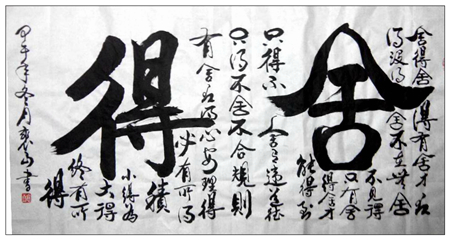 舍
舍得舍得有舍才有
得没得舍不在舍
不见得
只有舍
得舍才
能得到
只得不舍有违
只得不舍不合规则
有舍有得心安理得
得
必有所得
积
小得为
大得
终有所
得
甲午年冬月山书